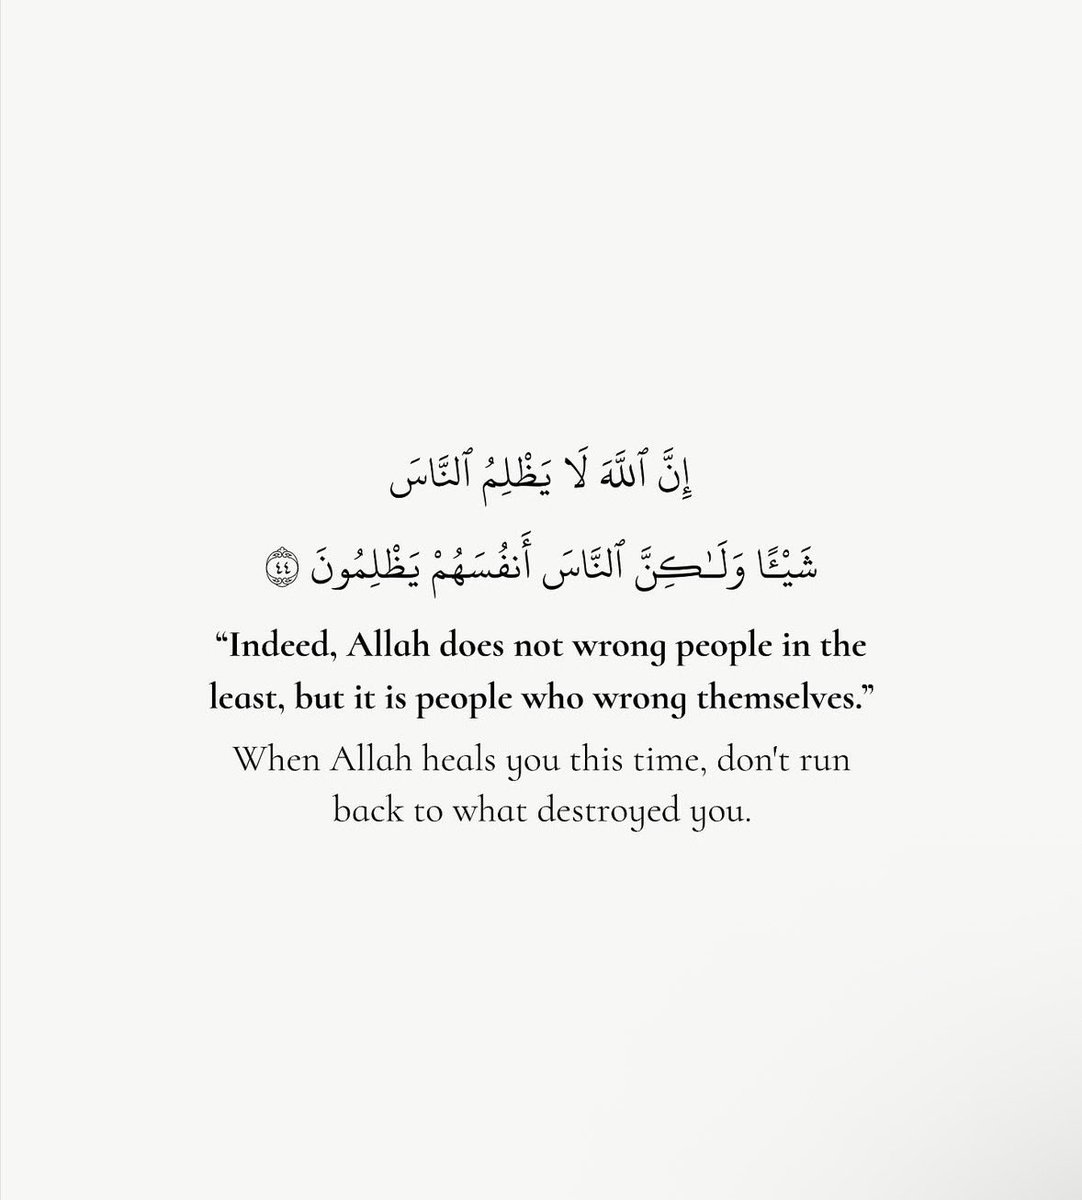 إِنَّ ٱللَّهَ لَا يَظْلِمُ ٱلنَّاسَ
شَيْـًٔا وَلَـٰكِنَّ ٱلنَّاسَ أَنفُسَهُمْ يَظْلِمُونَ ٤٤
“Indeed, Allah does not wrong people in the
least, but it is people who wrong themselves.”
When Allah heals you this time, don't run
back to what destroyed you.